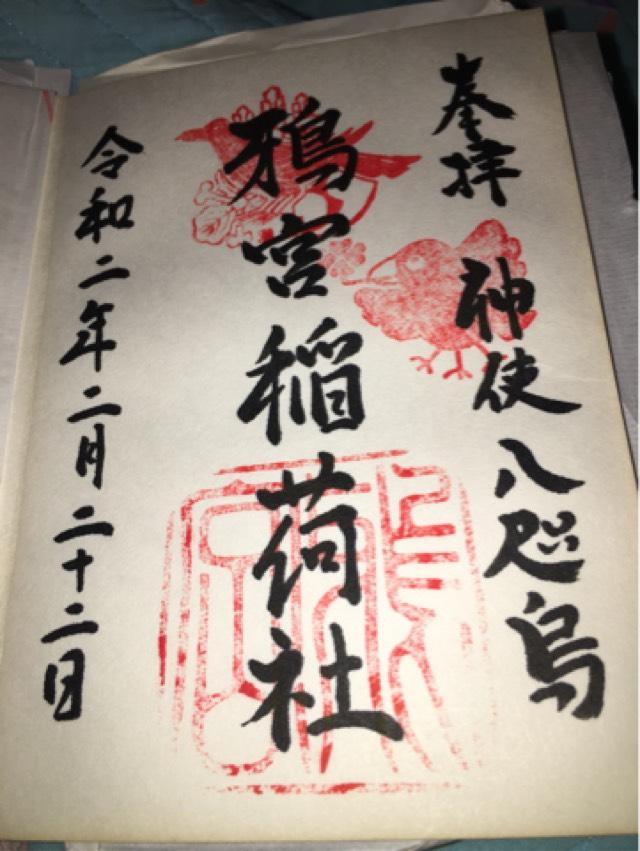 奉拝
神使八咫烏
鴉宮稲荷社
令和二年二月二十二日